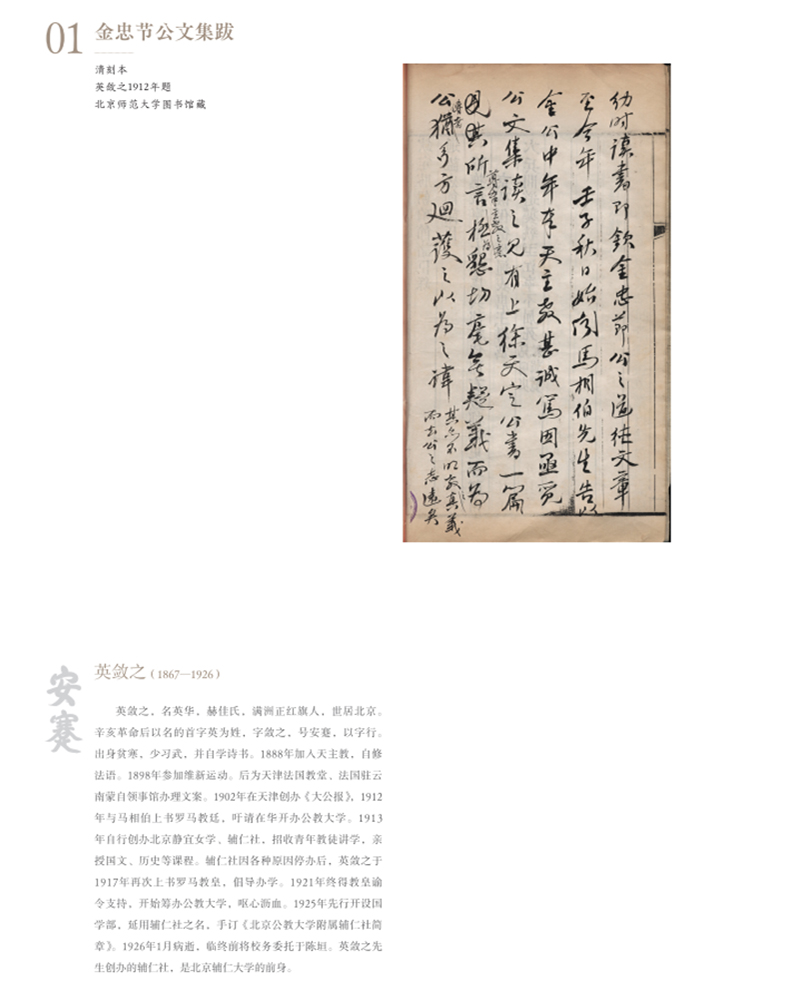 01
金忠节公文集跋
清刻本
英敛之1912年题
北京师范大学图书馆藏
幼时读書即钦金忠節公之道德文章
至今年壬子秋日始闻馬相伯先生告以
金公中年奉天主教甚诚篤因亟覓
公文集读之见有上徐天定公書一篇
見其所言極懇切毫無疑義而為
公猶多方迴護之以為之諱
其亦不明教真義
而去公之志遠矣
安蹇
英敛之（1867—1926）
英敛之，名英华，赫佳氏，满洲正红旗人，世居北京。
辛亥革命后以名的首字英为姓，字敛之，号安蹇，以字行。
出身贫寒，少习武，并自学诗书。1888年加入天主教，自修
法语。1898年参加维新运动。后为天津法国教堂、法国驻云
南蒙自领事馆办理文案。1902年在天津创办《大公报》，1912
年与马相伯上书罗马教廷，吁请在华开办公教大学。1913
年自行创办北京静宜女学、辅仁社，招收青年教徒讲学，亲
授国文、历史等课程。辅仁社因各种原因停办后，英敛之于
1917年再次上书罗马教皇，倡导办学。1921年终得教皇谕
令支持，开始筹办公教大学，呕心沥血。1925年先行开设国
学部，延用辅仁社之名，手订《北京公教大学附属辅仁社简
章》。1926年1月病逝，临终前将校务委托于陈垣。英敛之先
生创办的辅仁社，是北京辅仁大学的前身。